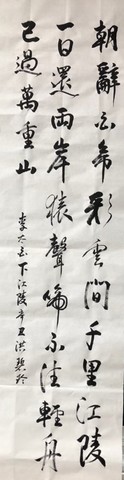 朝辭白帝彩雲間千里江陵
一日還兩岸猿聲啼不住輕舟
已過萬重山
李太白下江陵辛丑洪碧珍